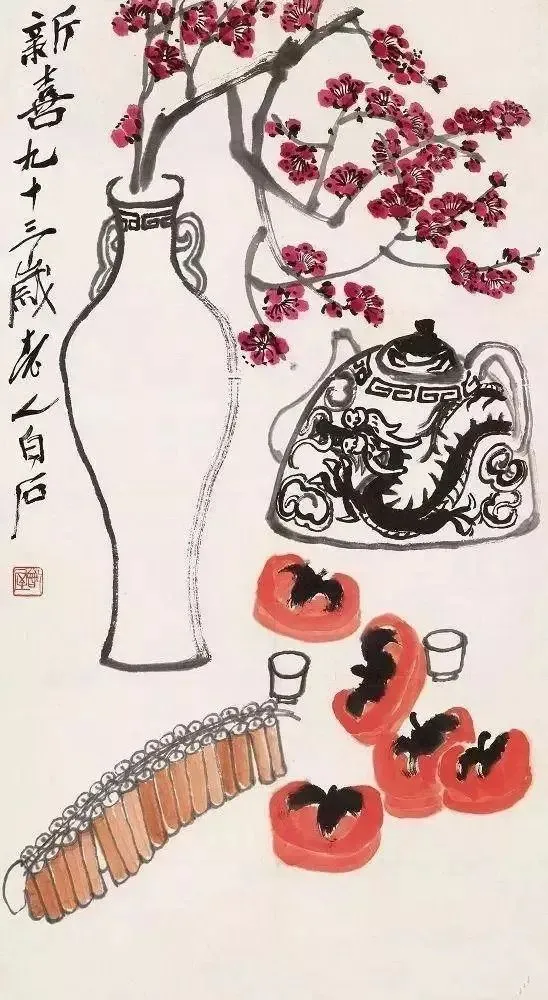 新喜九十三歲老人白石